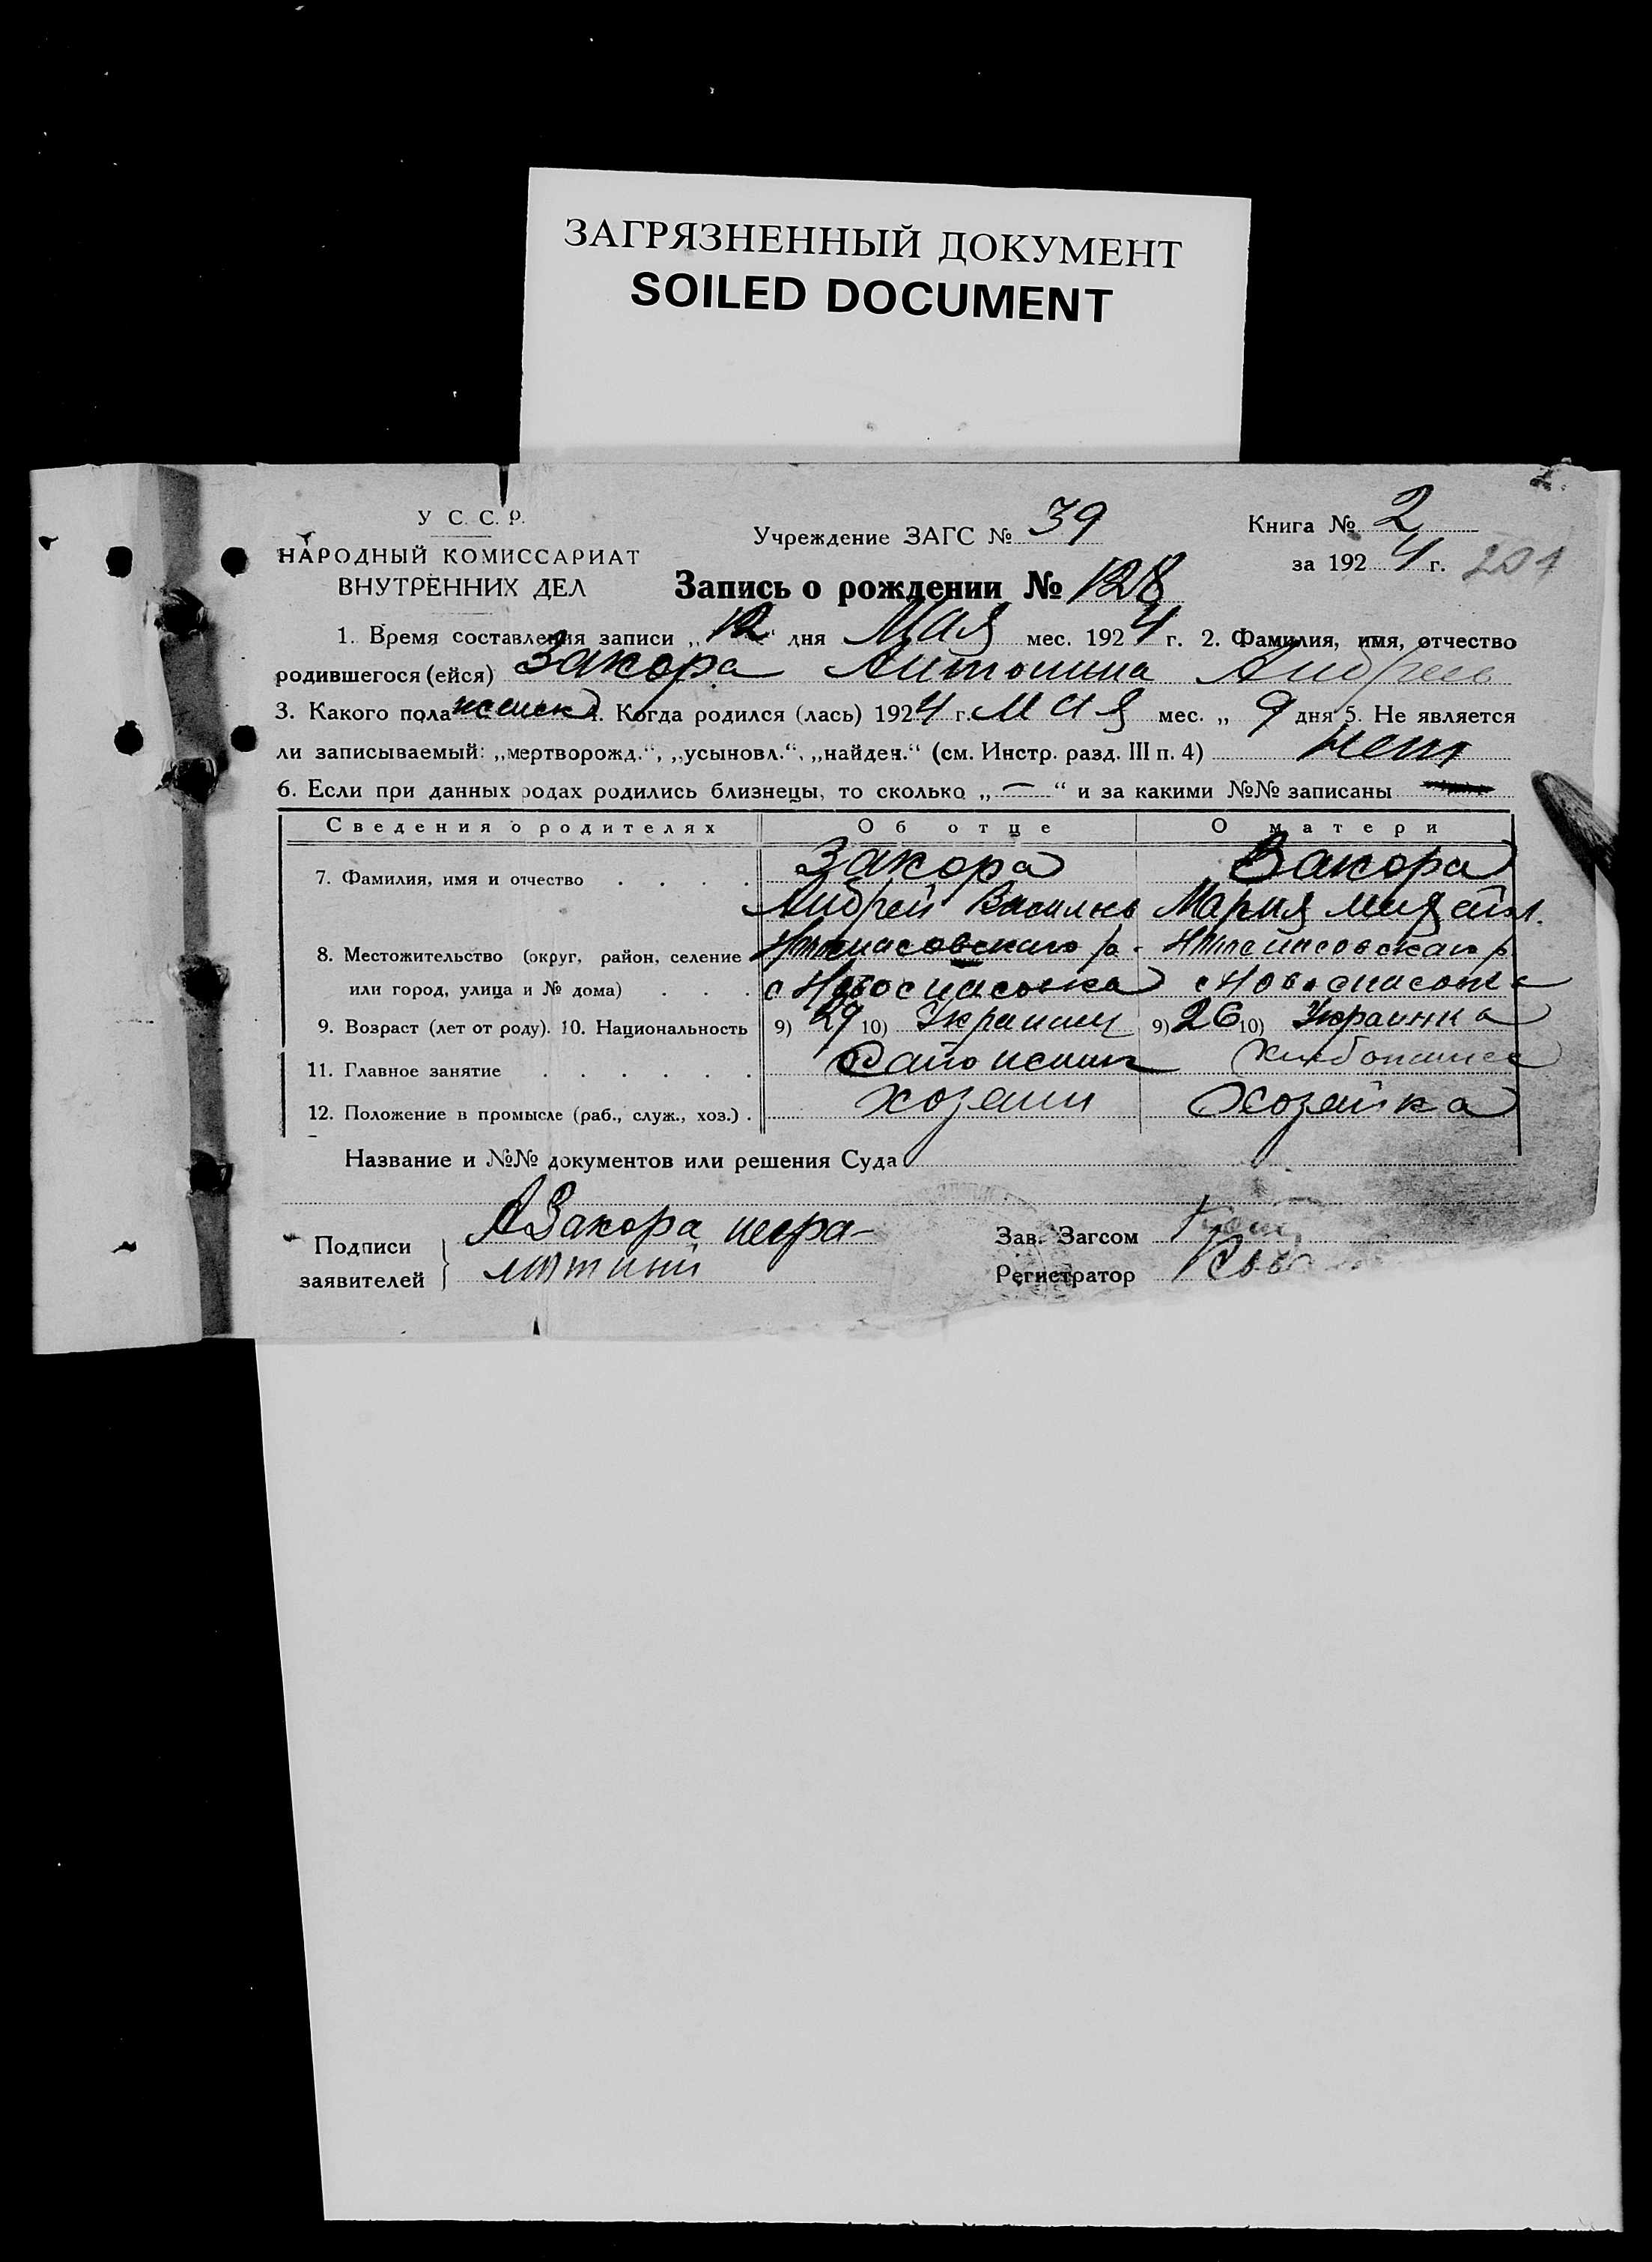 ЗАГРЯЗНЕННЫЙ ДОКУМЕНТ
SOILED DOCUMENT
2.
У С. С. Р.
НАРОДНЫЙ КОМИССАРИАТ
ВНУТРЕННИХ ДЕЛ
Учреждение ЗАГС № 39
Книга № 2
за 1924 г. 204
Запись о рождении № 128
1. Время составления записи „12“ дня Мая мес. 1924 г. 2. Фамилия, имя, отчество
родившегося (ейся) Закора Антонина Андреев
3. Какого пола женск 4. Когда родился (лась) 1924 г. Мая мес. „ 9 дня 5. Не является
ли записываемый: „мертворожд.“, „усыновл.“, „найден.“ (см. Инстр. разд. III п. 4) Нет
6. Если при данных родах родились близнецы, то сколько „—“ и за какими №№ записаны
Сведения о родителях Об отце О матери
7. Фамилия, имя и отчество Закора Закора
Андрей Васильев Мария Михайл.
8. Местожительство (округ, район, селение
или город, улица и № дома) с Новоспасовка с Новоспасовка
9. Возраст (лет от роду). 10. Национальность 9) 29 10) Украинец 9) 26 10) Украинка
11. Главное занятие Сапожник
12. Положение в промысле (раб., служ., хоз.) хозяин Хозяйка
Название и №№ документов или решения Суда
Подписи
заявителей
А Закора негра-
мотный
Зав. Загсом
Регистратор